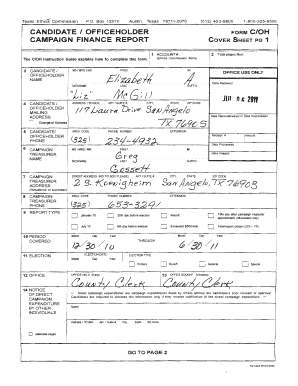 Texas Ethics Commission P.O. Box 12070 Austin, Texas 78711-2070 (512) 463-5800 1-800-325-8506
CANDIDATE / OFFICEHOLDER FORM C/OH
CAMPAIGN FINANCE REPORT COVER SHEET PG 1
The C/OH Instruction Guide explains how to complete this form. 1 ACCOUNT # 2 Total pages filed:
3 CANDIDATE / OFFICEHOLDER NAME MS / MRS / MR FIRST MI
Elizabeth A
NICKNAME LAST SUFFIX
"Liz" McGill
OFFICE USE ONLY
Date Received
2011
4 CANDIDATE / OFFICEHOLDER MAILING ADDRESS
ADDRESS / PO BOX; APT / SUITE #; CITY; STATE; ZIP CODE
117 Laura Drive San Angelo
TX 76905
Change of Address
Date Hand-delivered or Date Postmarked
5 CANDIDATE / OFFICEHOLDER PHONE
AREA CODE PHONE NUMBER EXTENSION
(325) 234-4932
Receipt # Amount
Date Processed
6 CAMPAIGN TREASURER NAME
MS / MRS / MR FIRST MI
Greg
NICKNAME LAST SUFFIX
Gossett
Date Imaged
7 CAMPAIGN TREASURER ADDRESS
(Residence or Business)
STREET ADDRESS (NO PO BOX PLEASE); APT / SUITE #; CITY; STATE; ZIP CODE
2 S. Koenigheim San Angelo, TX 76903
8 CAMPAIGN TREASURER PHONE
AREA CODE PHONE NUMBER EXTENSION
(325) 653-3291
9 REPORT TYPE
January 15 30th day before election Runoff 15th day after campaign treasurer appointment (officeholder only)
July 15 8th day before election Exceeded $500 limit Final report (Attach C/OH - FR)
10 PERIOD COVERED
Month Day Year THROUGH Month Day Year
12/30/10 6/30/11
11 ELECTION
ELECTION DATE ELECTION TYPE
Month Day Year
Primary Runoff General Special
12 OFFICE
OFFICE HELD (if any) 13 OFFICE SOUGHT (if known)
County Clerk County Clerk
14 NOTICE OF DIRECT CAMPAIGN EXPENDITURE BY OTHER INDIVIDUALS
Name
additional pages
GO TO PAGE 2